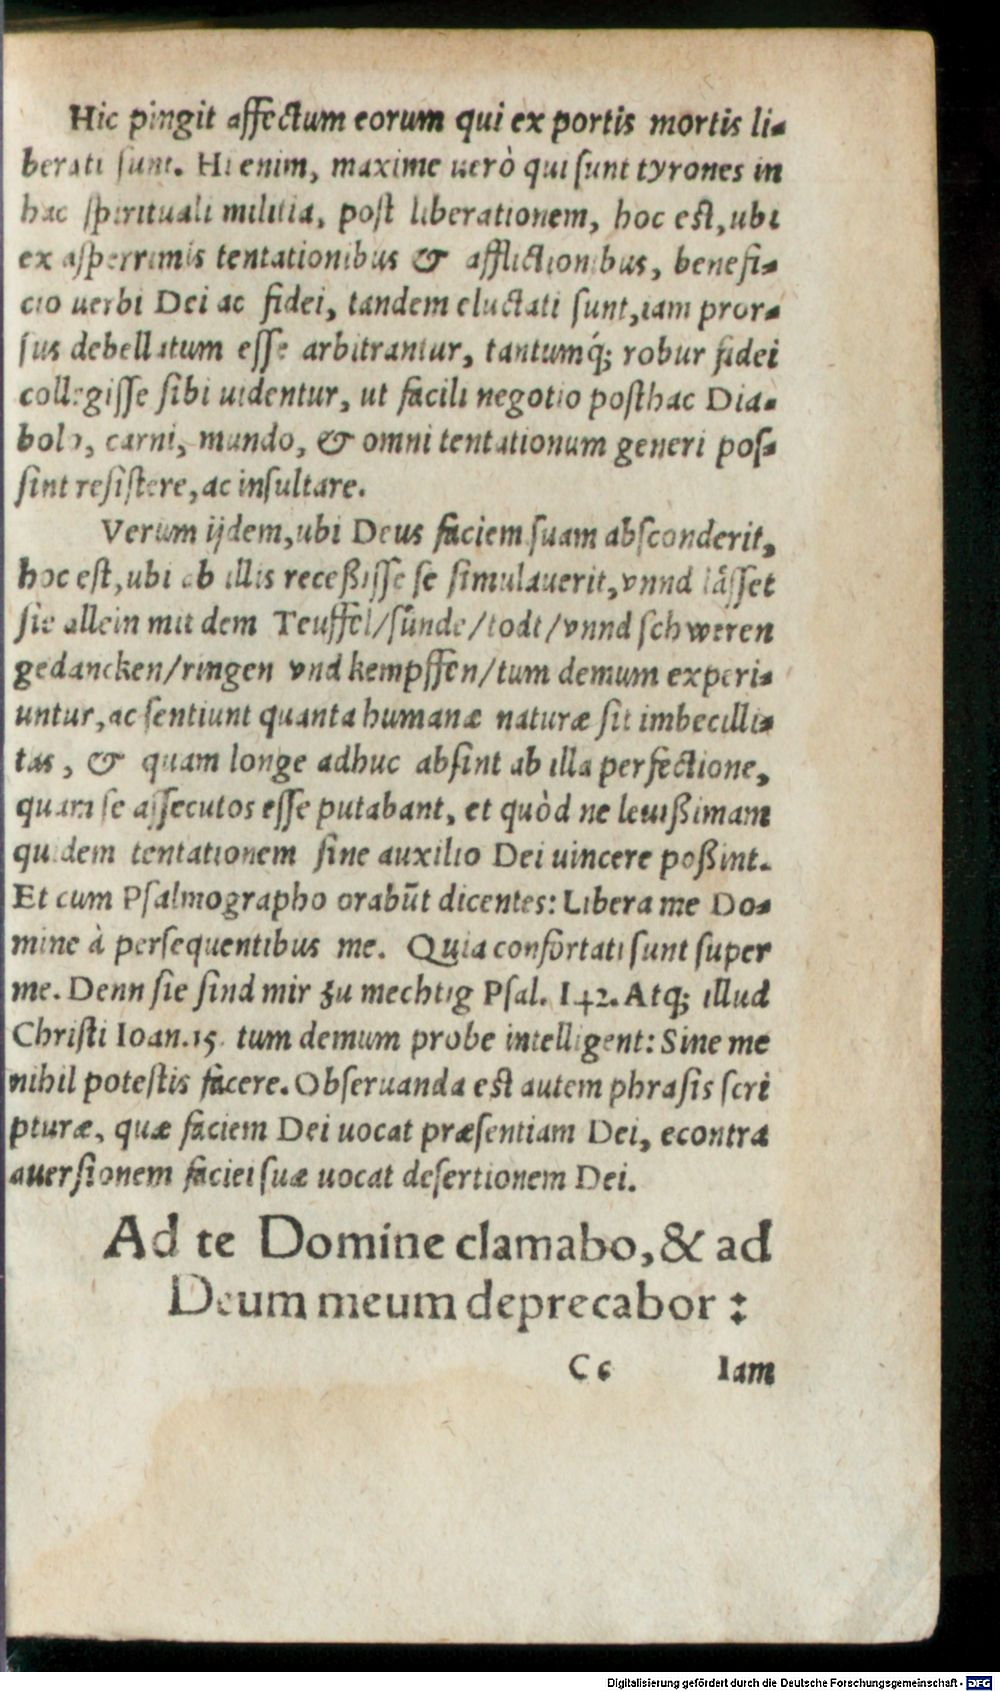 Hic pingit affectum eorum qui ex portis mortis li-
berati sunt. Hi enim, maxime uerò qui sunt tyrones in
hac spirituali militia, post liberationem, hoc est, ubi
ex asperrimis tentationibus & afflictionibus, benefi-
cio uerbi Dei ac fidei, tandem eluctati sunt, iam pror-
sus debellatum esse arbitrantur, tantumq́; robur fidei
collegisse sibi uidentur, ut facili negotio posthac Dia-
bolo, carni, mundo, & omni tentationum generi pos-
sint resistere, ac insultare.
Verum ijdem, ubi Deus faciem suam absconderit,
hoc est, ubi ab illis receßisse se simulauerit, vnnd lässet
sie allein mit dem Teuffel/sünde/todt/vnnd schweren
gedancken/ringen vnd kempffen/tum demum experi-
untur, ac sentiunt quanta humanæ naturæ sit imbecilli-
tas, & quam longe adhuc absint ab illa perfectione,
quam se assecutos esse putabant, et quòd ne leuißimam
quidem tentationem sine auxilio Dei uincere poßint.
Et cum Psalmographo orabūt dicentes: Libera me Do-
mine à persequentibus me. Quia confortati sunt super
me. Denn sie sind mir zu mechtig Psal. 142. Atq; illud
Christi Ioan. 15. tum demum probe intelligent: Sine me
nihil potestis facere. Obseruanda est autem phrasis scri
pturæ, quæ faciem Dei uocat præsentiam Dei, econtra
auersionem faciei suæ uocat desertionem Dei.
Ad te Domine clamabo, & ad
Deum meum deprecabor:
C c Iam
Digitalisierung gefördert durch die Deutsche Forschungsgemeinschaft - DFG